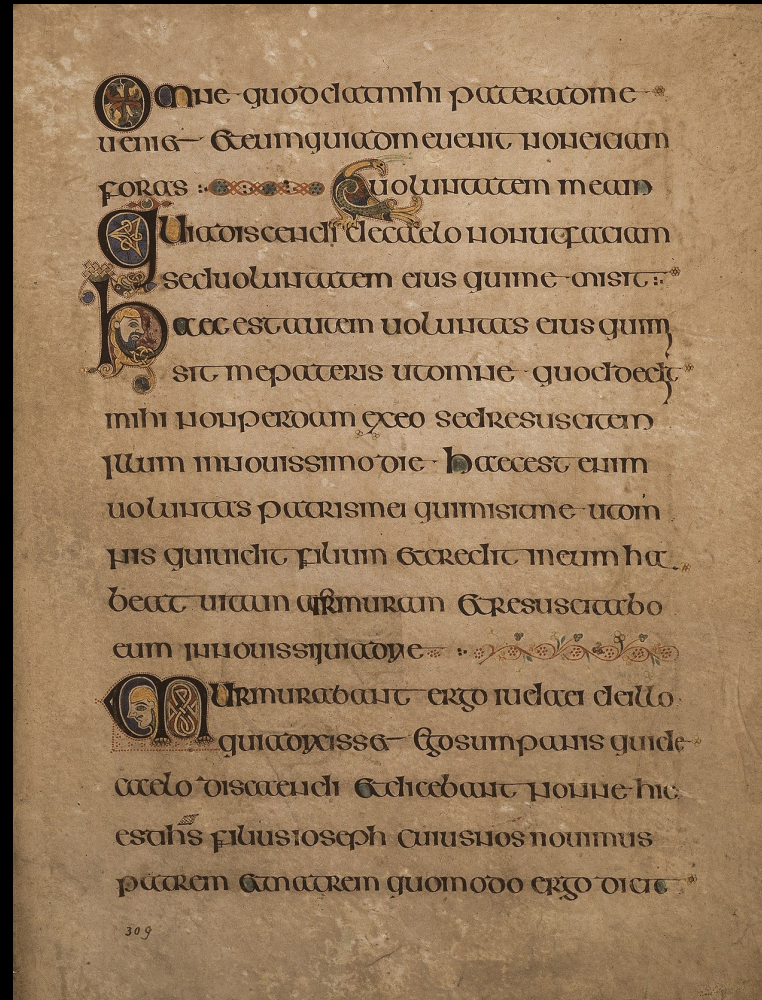 Omne quod dat mihi pater ad me
ueniet et eum qui ad me uenit non eiciam
foras uoluntatem meam
Quia discendi de caelo non ut faciam
sed uoluntatem eius qui me misit
haec est autem uoluntas eius qui m
sit me pateris ut omne quod dedit
mihi non perdam ex eo sed resuscitem
illum in nouissimo die haec est enim
uoluntas patris mei qui misit me ut om
nis qui uidit filium et credit in eum ha
beat uitam et resuscitabo
eum in
Murmurabant ergo iudaei de illo
quia dixisset ego sum panis qui de
caelo discendi et dicebant nonne hic
est ihs filius ioseph cuius nos nouimus
patrem et matrem quomodo ergo dicit
309